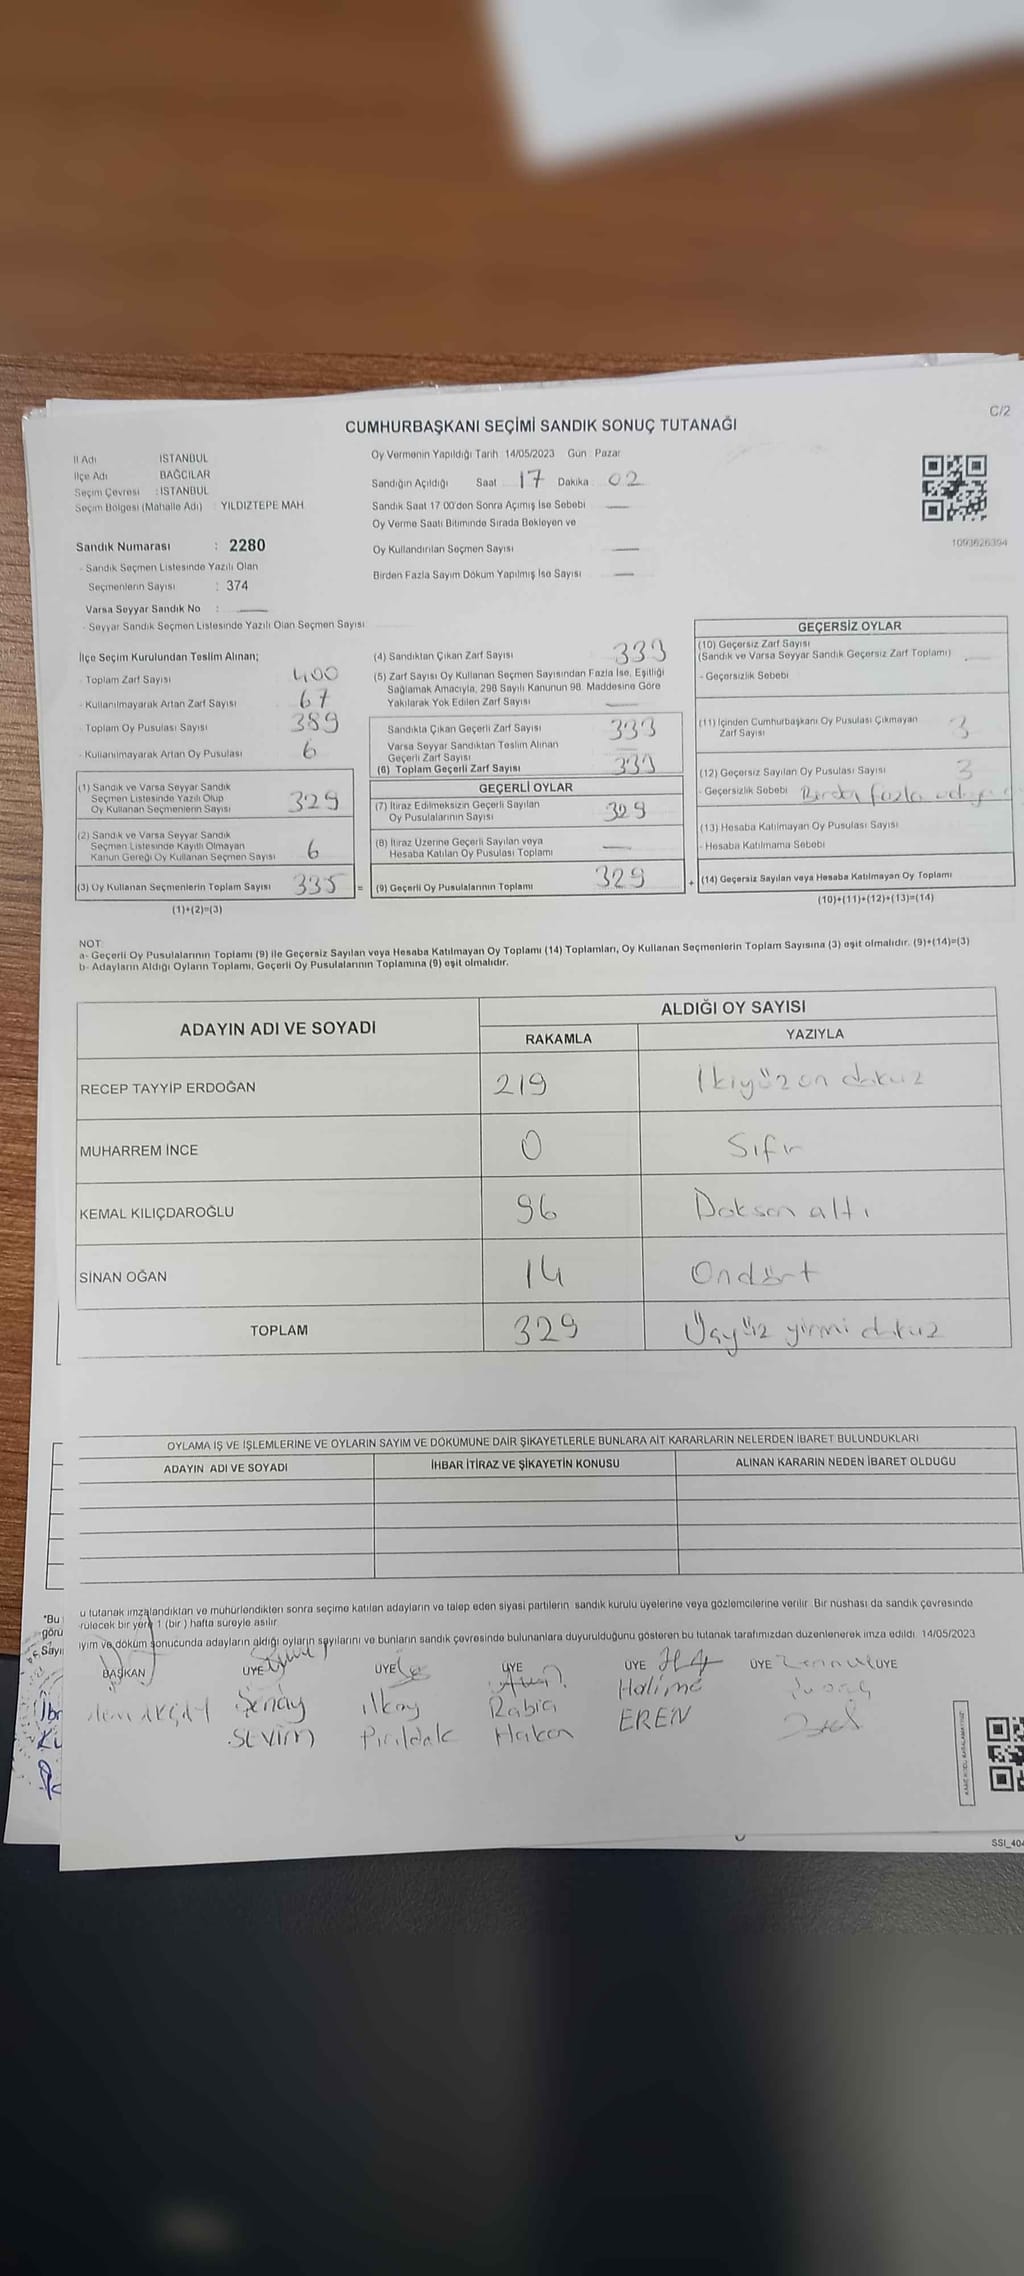 C/2
CUMHURBAŞKANI SEÇİMİ SANDIK SONUÇ TUTANAĞI
İl Adı İSTANBUL
İlçe Adı BAĞCILAR
Seçim Çevresi : İSTANBUL
Seçim Bölgesi (Mahalle Adı) YILDIZTEPE MAH
Sandık Numarası : 2280
- Sandık Seçmen Listesinde Yazılı Olan
Seçmenlerin Sayısı : 374
Varsa Seyyar Sandık No :
- Seyyar Sandık Seçmen Listesinde Yazılı Olan Seçmen Sayısı
Oy Vermenin Yapıldığı Tarih 14/05/2023 Gün Pazar
Sandığın Açıldığı Saat 17 Dakika 02
Sandık Saat 17 00'den Sonra Açımış İse Sebebi
Oy Verme Saati Bitiminde Sırada Bekleyen ve
Oy Kullandırılan Seçmen Sayısı
Birden Fazla Sayım Döküm Yapılmış İse Sayısı
1093626394
İlçe Seçim Kurulundan Teslim Alınan;
- Toplam Zarf Sayısı 400
- Kullanılmayarak Artan Zarf Sayısı 67
- Toplam Oy Pusulası Sayısı 389
- Kullanılmayarak Artan Oy Pusulası 6
(1) Sandık ve Varsa Seyyar Sandık
Seçmen Listesinde Yazılı Olup
Oy Kullanan Seçmenlerin Sayısı 329
(2) Sandık ve Varsa Seyyar Sandık
Seçmen Listesinde Kayıtlı Olmayan
Kanun Gereği Oy Kullanan Seçmen Sayısı 6
(3) Oy Kullanan Seçmenlerin Toplam Sayısı 335 =
(1)+(2)=(3)
(4) Sandıktan Çıkan Zarf Sayısı 333
(5) Zarf Sayısı Oy Kullanan Seçmen Sayısından Fazla İse, Eşitliği
Sağlamak Amacıyla, 298 Sayılı Kanunun 98. Maddesine Göre
Yakılarak Yok Edilen Zarf Sayısı
Sandıkta Çıkan Geçerli Zarf Sayısı 333
Varsa Seyyar Sandıktan Teslim Alınan
Geçerli Zarf Sayısı
(6) Toplam Geçerli Zarf Sayısı 333
GEÇERLİ OYLAR
(7) İtiraz Edilmeksizin Geçerli Sayılan
Oy Pusulalarının Sayısı 329
(8) İtiraz Üzerine Geçerli Sayılan veya
Hesaba Katılan Oy Pusulası Toplamı
(9) Geçerli Oy Pusulalarının Toplamı 329 +
GEÇERSİZ OYLAR
(10) Geçersiz Zarf Sayısı
(Sandık ve Varsa Seyyar Sandık Geçersiz Zarf Toplamı)
- Geçersizlik Sebebi
(11) İçinden Cumhurbaşkanı Oy Pusulası Çıkmayan
Zarf Sayısı 3
(12) Geçersiz Sayılan Oy Pusulası Sayısı 3
- Geçersizlik Sebebi Birden fazla
(13) Hesaba Katılmayan Oy Pusulası Sayısı
- Hesaba Katılmama Sebebi
(14) Geçersiz Sayılan veya Hesaba Katılmayan Oy Toplamı
(10)+(11)+(12)+(13)=(14)
NOT
a- Geçerli Oy Pusulalarının Toplamı (9) ile Geçersiz Sayılan veya Hesaba Katılmayan Oy Toplamı (14) Toplamları, Oy Kullanan Seçmenlerin Toplam Sayısına (3) eşit olmalıdır. (9)+(14)=(3)
b- Adayların Aldığı Oyların Toplamı, Geçerli Oy Pusulalarının Toplamına (9) eşit olmalıdır.
ADAYIN ADI VE SOYADI ALDIĞI OY SAYISI
RAKAMLA YAZIYLA
RECEP TAYYİP ERDOĞAN 219 İkiyüz on dokuz
MUHARREM İNCE 0 Sıfır
KEMAL KILIÇDAROĞLU 96 Doksan altı
SİNAN OĞAN 14 Ondört
TOPLAM 329 Üçyüz yirmi dokuz
OYLAMA İŞ VE İŞLEMLERİNE VE OYLARIN SAYIM VE DÖKÜMÜNE DAİR ŞİKAYETLERLE BUNLARA AİT KARARLARIN NELERDEN İBARET BULUNDUKLARI
ADAYIN ADI VE SOYADI İHBAR İTİRAZ VE ŞİKAYETİN KONUSU ALINAN KARARIN NEDEN İBARET OLDUĞU
"Bu
u tutanak imzalandıktan ve mühürlendikten sonra seçime katılan adayların ve talep eden siyasi partilerin sandık kurulu üyelerine veya gözlemcilerine verilir. Bir nüshası da sandık çevresinde
görü
rülecek bir yere 1 (bir ) hafta süreyle asılır
Sayı
ıyım ve döküm sonucunda adayların aldığı oyların sayılarını ve bunların sandık çevresinde bulunanlara duyurulduğunu gösteren bu tutanak tarafımızdan düzenlenerek imza edildi. 14/05/2023
BAŞKAN ÜYE ÜYE ÜYE ÜYE ÜYE ÜYE
AKÇAY Şenay İlkay Rabia Halime
SEVİM Pırıldak Hakan EREN
SSI_404